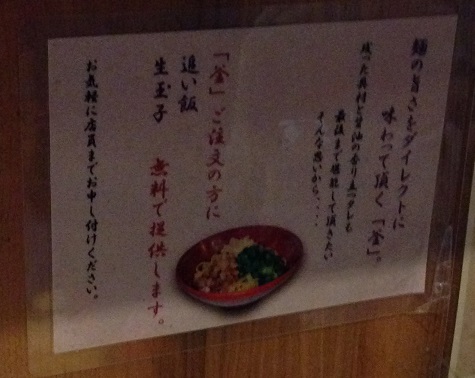 麺の旨さをダイレクトに
味わって頂く「釜」。
残った具材と醤油の香り立つタレも
最後まで堪能して頂きたい
そんな思いから、・・・
「釜」ご注文の方に
追い飯
生玉子 無料で提供します。
お気軽に店員までお申し付けください。